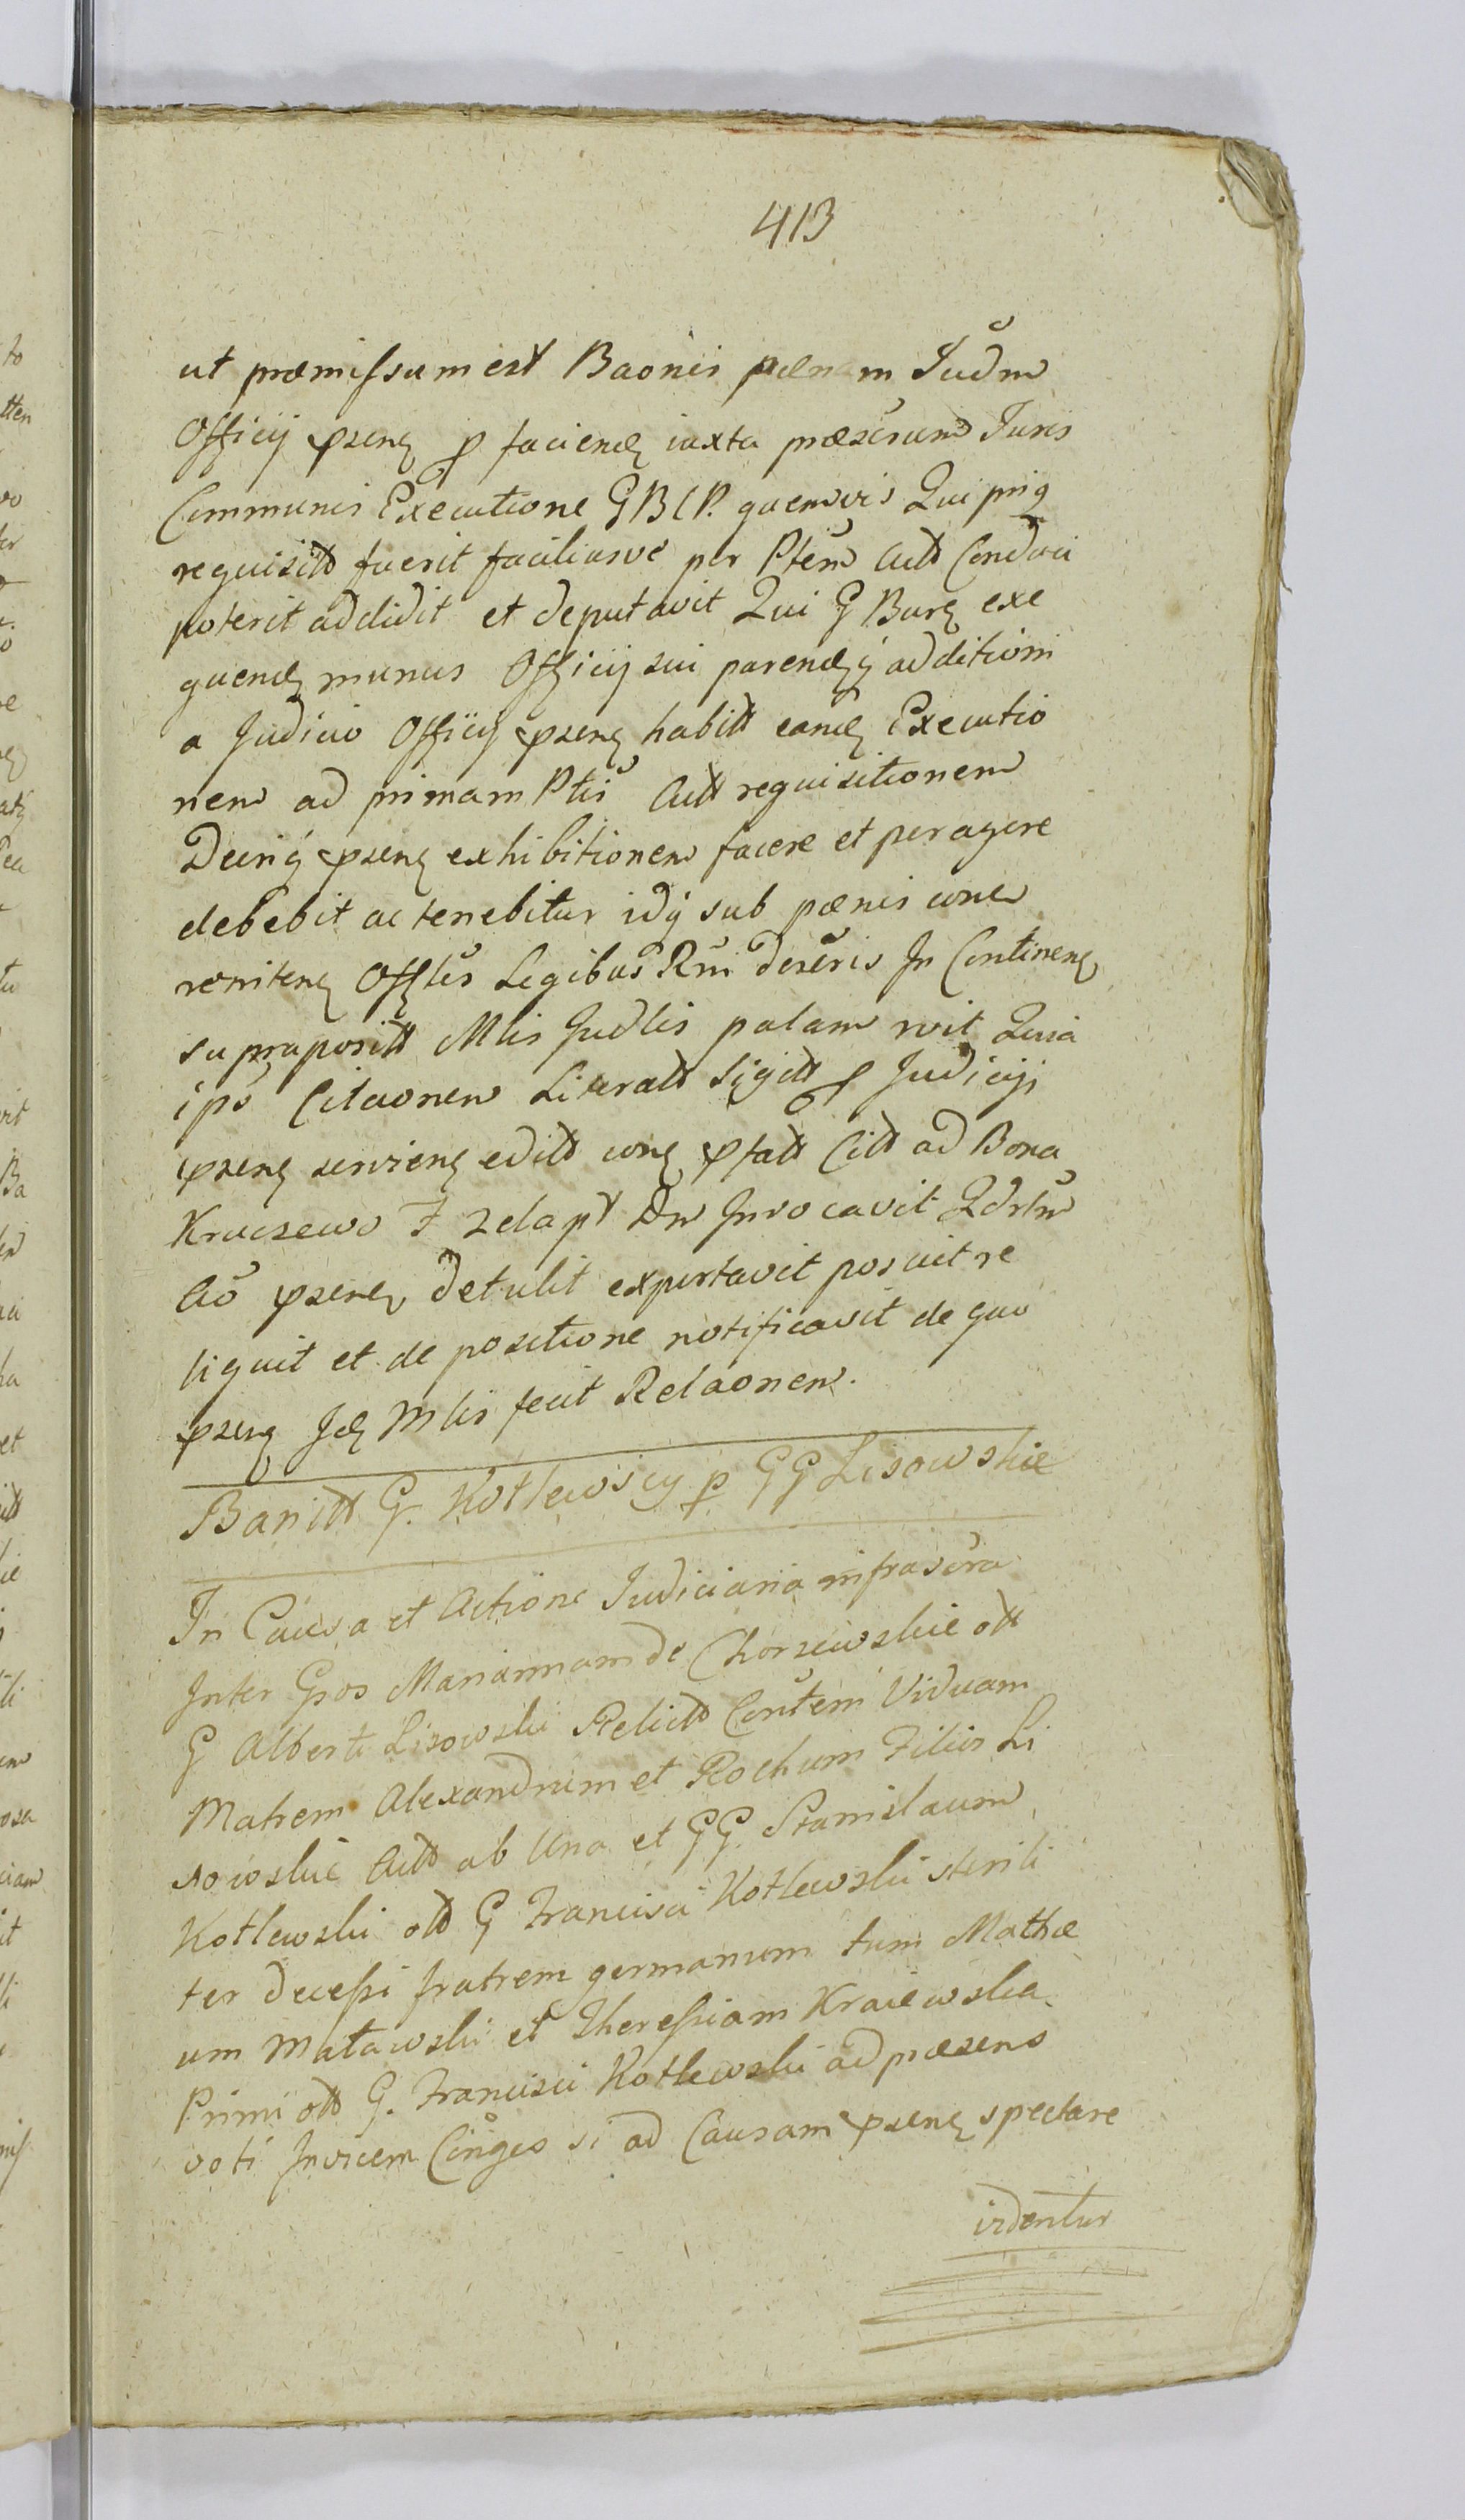 413
ut præmissum est Baonis pænam Judm
Officij pseng p faciend iuxta præscrum Juris
Communis Executione GBCP. quemvis Qui priq
requisitt fuerit faciliusve per Ptem Actt Conduci
poterit addidit et deputavit Qui G Burg exe
quend munus Officij sui parendq additioni
a Judicio Officij pseng habitt eand Executio
nem ad primam Ptis Actt requisitionem
Decriq pseng exhibitionem facere et peragere
debebit ac tenebitur idq sub pænis conv
reniteng Offles Legibus Rni descris In Contineng
supraposittt Mlis Judlis palam rvit Quia
ips Citaonem Literatt Sigitt p Judicij
pseng servieng editt cong pfatt Citt ad Bona
Kruczewo F Zelapy Dn Invocavit Qdrtm
Ao pseng detulit exportavit posuit re
liquit et de positione notificavit de quo
pseng Jd Mlis fecit Relaonem.
Banitt G. Kotlewscy p GG Lisowskie
In Causa et Actione Judiciaria infrascra
Inter Gsos Mariannam de Chorzewskie ott
G Alberti Lisowski Relictt Contem Viduam
Matrem Alexandrum et Rochum Filios Li
sowskie Actt ab Una et GG. Stanislaum
Kotlewski ott G Francisci Kotlewski sterili
ter decessi fratrem germanum tum Mathæ
um Małowski et Theressiam Kraiewska
Primi ott G. Francisci Kotlewski ad præsens
voti Invicem Conges si ad Causam pseng spectare
videntur